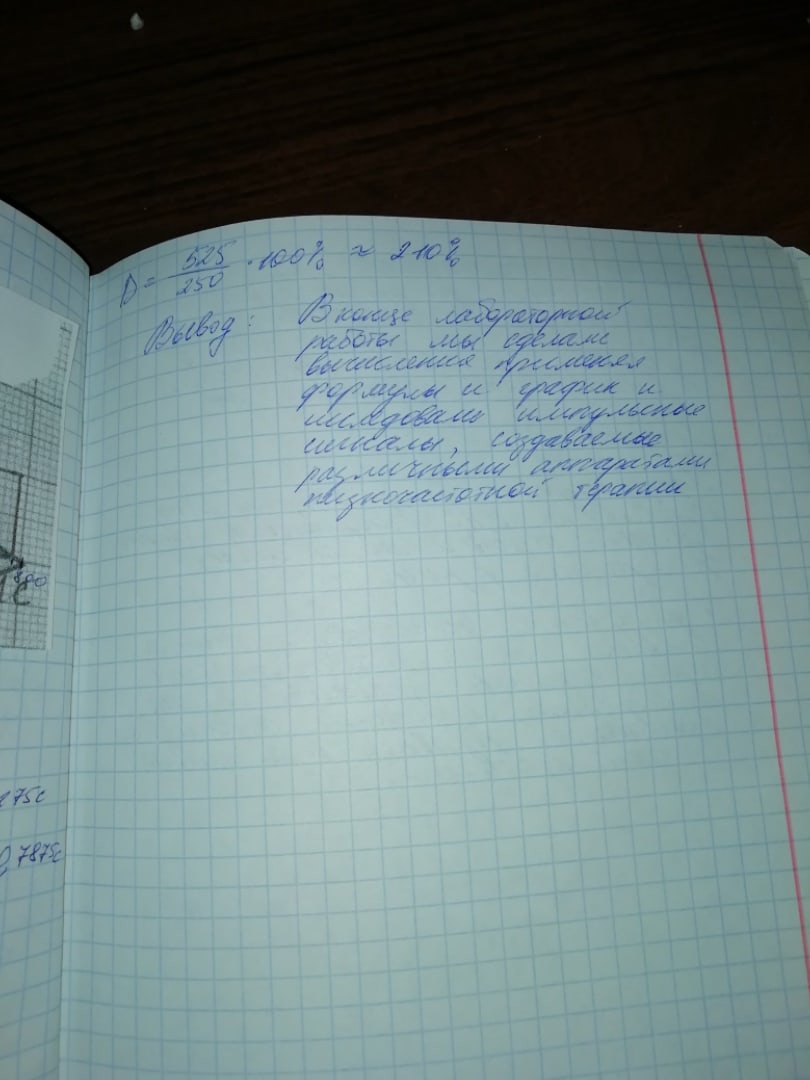 D = 525/250 · 100% ≈ 210%
Вывод: В конце лабораторной
работы мы сделали
вычисления применяя
формулы и график и
исследовали импульсные
сигналы, создаваемые
различными аппаратами
низкочастотной терапии
175с
0,7875с